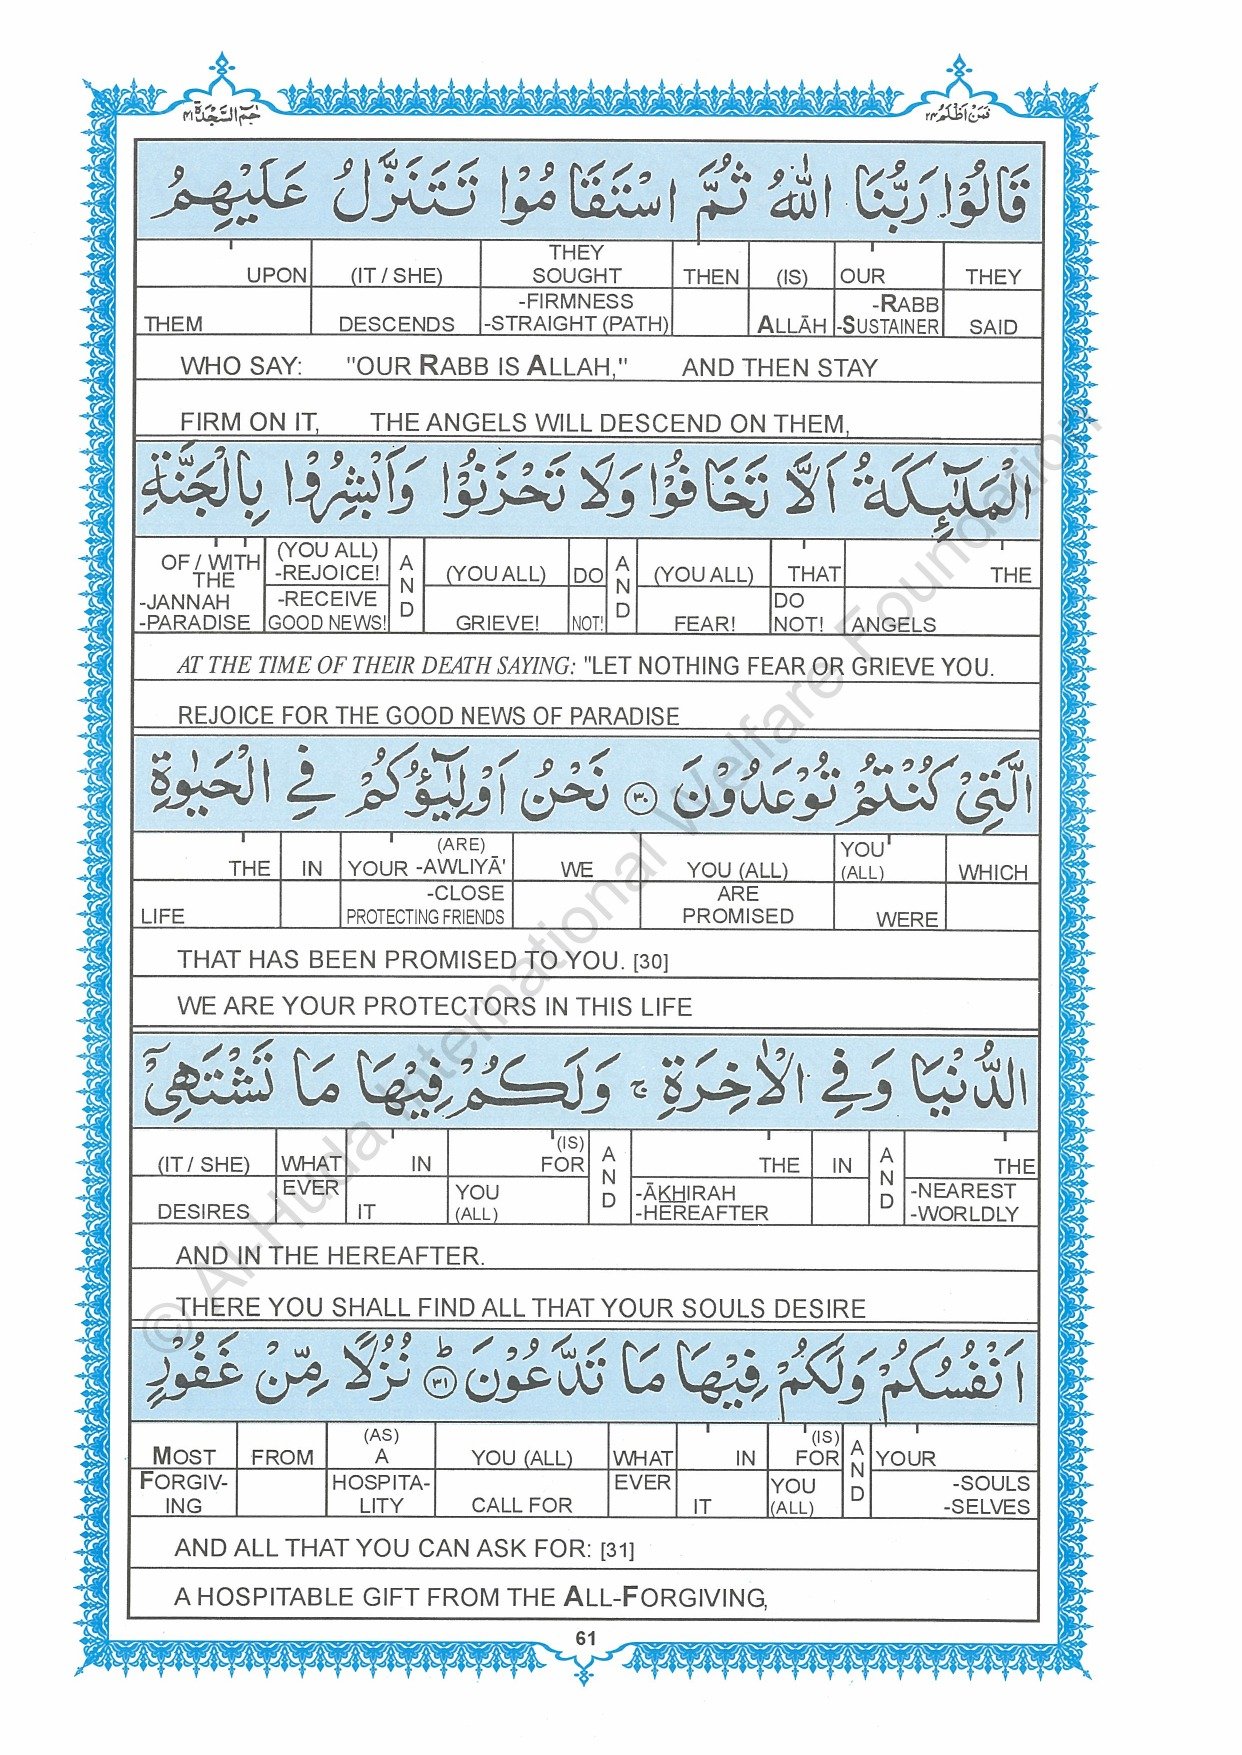 حٰمٓ السَّجْدَة ٤١
فَمَنْ اَظْلَمُ ٢٤
قَالُوْا رَبُّنَا اللّٰهُ ثُمَّ اسْتَقَامُوْا تَتَنَزَّلُ عَلَيْهِمُ
UPON (IT / SHE) THEY SOUGHT THEN (IS) OUR THEY
THEM DESCENDS -FIRMNESS -STRAIGHT (PATH) ALLĀH -RABB -SUSTAINER SAID
WHO SAY: "OUR RABB IS ALLAH," AND THEN STAY
FIRM ON IT, THE ANGELS WILL DESCEND ON THEM,
الْمَلٰٓئِكَةُ اَلَّا تَخَافُوْا وَلَا تَحْزَنُوْا وَاَبْشِرُوْا بِالْجَنَّةِ
OF / WITH THE (YOU ALL) -REJOICE! AND (YOU ALL) DO AND (YOU ALL) THAT THE
-JANNAH -PARADISE -RECEIVE GOOD NEWS! GRIEVE! NOT! FEAR! DO NOT! ANGELS
AT THE TIME OF THEIR DEATH SAYING: "LET NOTHING FEAR OR GRIEVE YOU.
REJOICE FOR THE GOOD NEWS OF PARADISE
الَّتِيْ كُنْتُمْ تُوْعَدُوْنَ ٣٠ نَحْنُ اَوْلِيٰٓؤُكُمْ فِي الْحَيٰوةِ
THE IN YOUR (ARE) -AWLIYĀ' WE YOU (ALL) YOU (ALL) WHICH
LIFE -CLOSE PROTECTING FRIENDS ARE PROMISED WERE
THAT HAS BEEN PROMISED TO YOU. [30]
WE ARE YOUR PROTECTORS IN THIS LIFE
الدُّنْيَا وَفِي الْاٰخِرَةِ ج وَلَكُمْ فِيْهَا مَا تَشْتَهِيْٓ
(IT / SHE) WHAT IN (IS) FOR AND THE IN AND THE
DESIRES EVER IT YOU (ALL) -ĀKHIRAH -HEREAFTER -NEAREST -WORLDLY
AND IN THE HEREAFTER.
THERE YOU SHALL FIND ALL THAT YOUR SOULS DESIRE
اَنْفُسُكُمْ وَلَكُمْ فِيْهَا مَا تَدَّعُوْنَ ط ٣١ نُزُلًا مِّنْ غَفُوْرٍ
MOST FROM (AS) A YOU (ALL) WHAT IN (IS) FOR AND YOUR
FORGIV-ING HOSPITA-LITY CALL FOR EVER IT YOU (ALL) -SOULS -SELVES
AND ALL THAT YOU CAN ASK FOR: [31]
A HOSPITABLE GIFT FROM THE ALL-FORGIVING,
61
© Al-Huda International Welfare Foundation